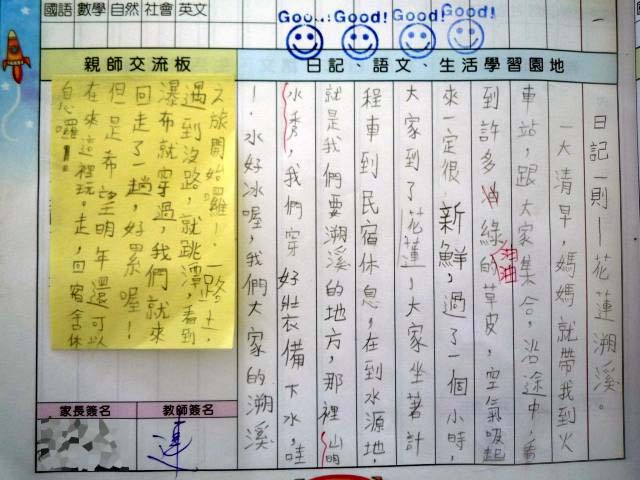 國語 數學 自然 社會 英文
Goo...! Good! Good! Good!
一
日記、語文、生活學習園地
日記一則—花蓮溯溪。
一大清早，媽媽就帶我到火
車站，跟大家集合，沿途中，看
到許多綠油油的草皮，空氣吸起
來一定很新鮮，過了一個小時，
大家到了花蓮，大家坐著計
程車到民宿休息，在到水源地，
就是我們要溯溪的地方，那裡山明
水秀，我們穿好壯衣備下水，哇
！水好冰喔，我們大家的溯溪
親師交流板
之旅開始囉！一路上，
遇到沒路，就跳潭，看到
瀑布就穿過，我們就來
回走了一趟，好累喔！
但是希望明年還可以
在來這裡玩。走，回宿舍休
息囉！
家長簽名
教師簽名
連